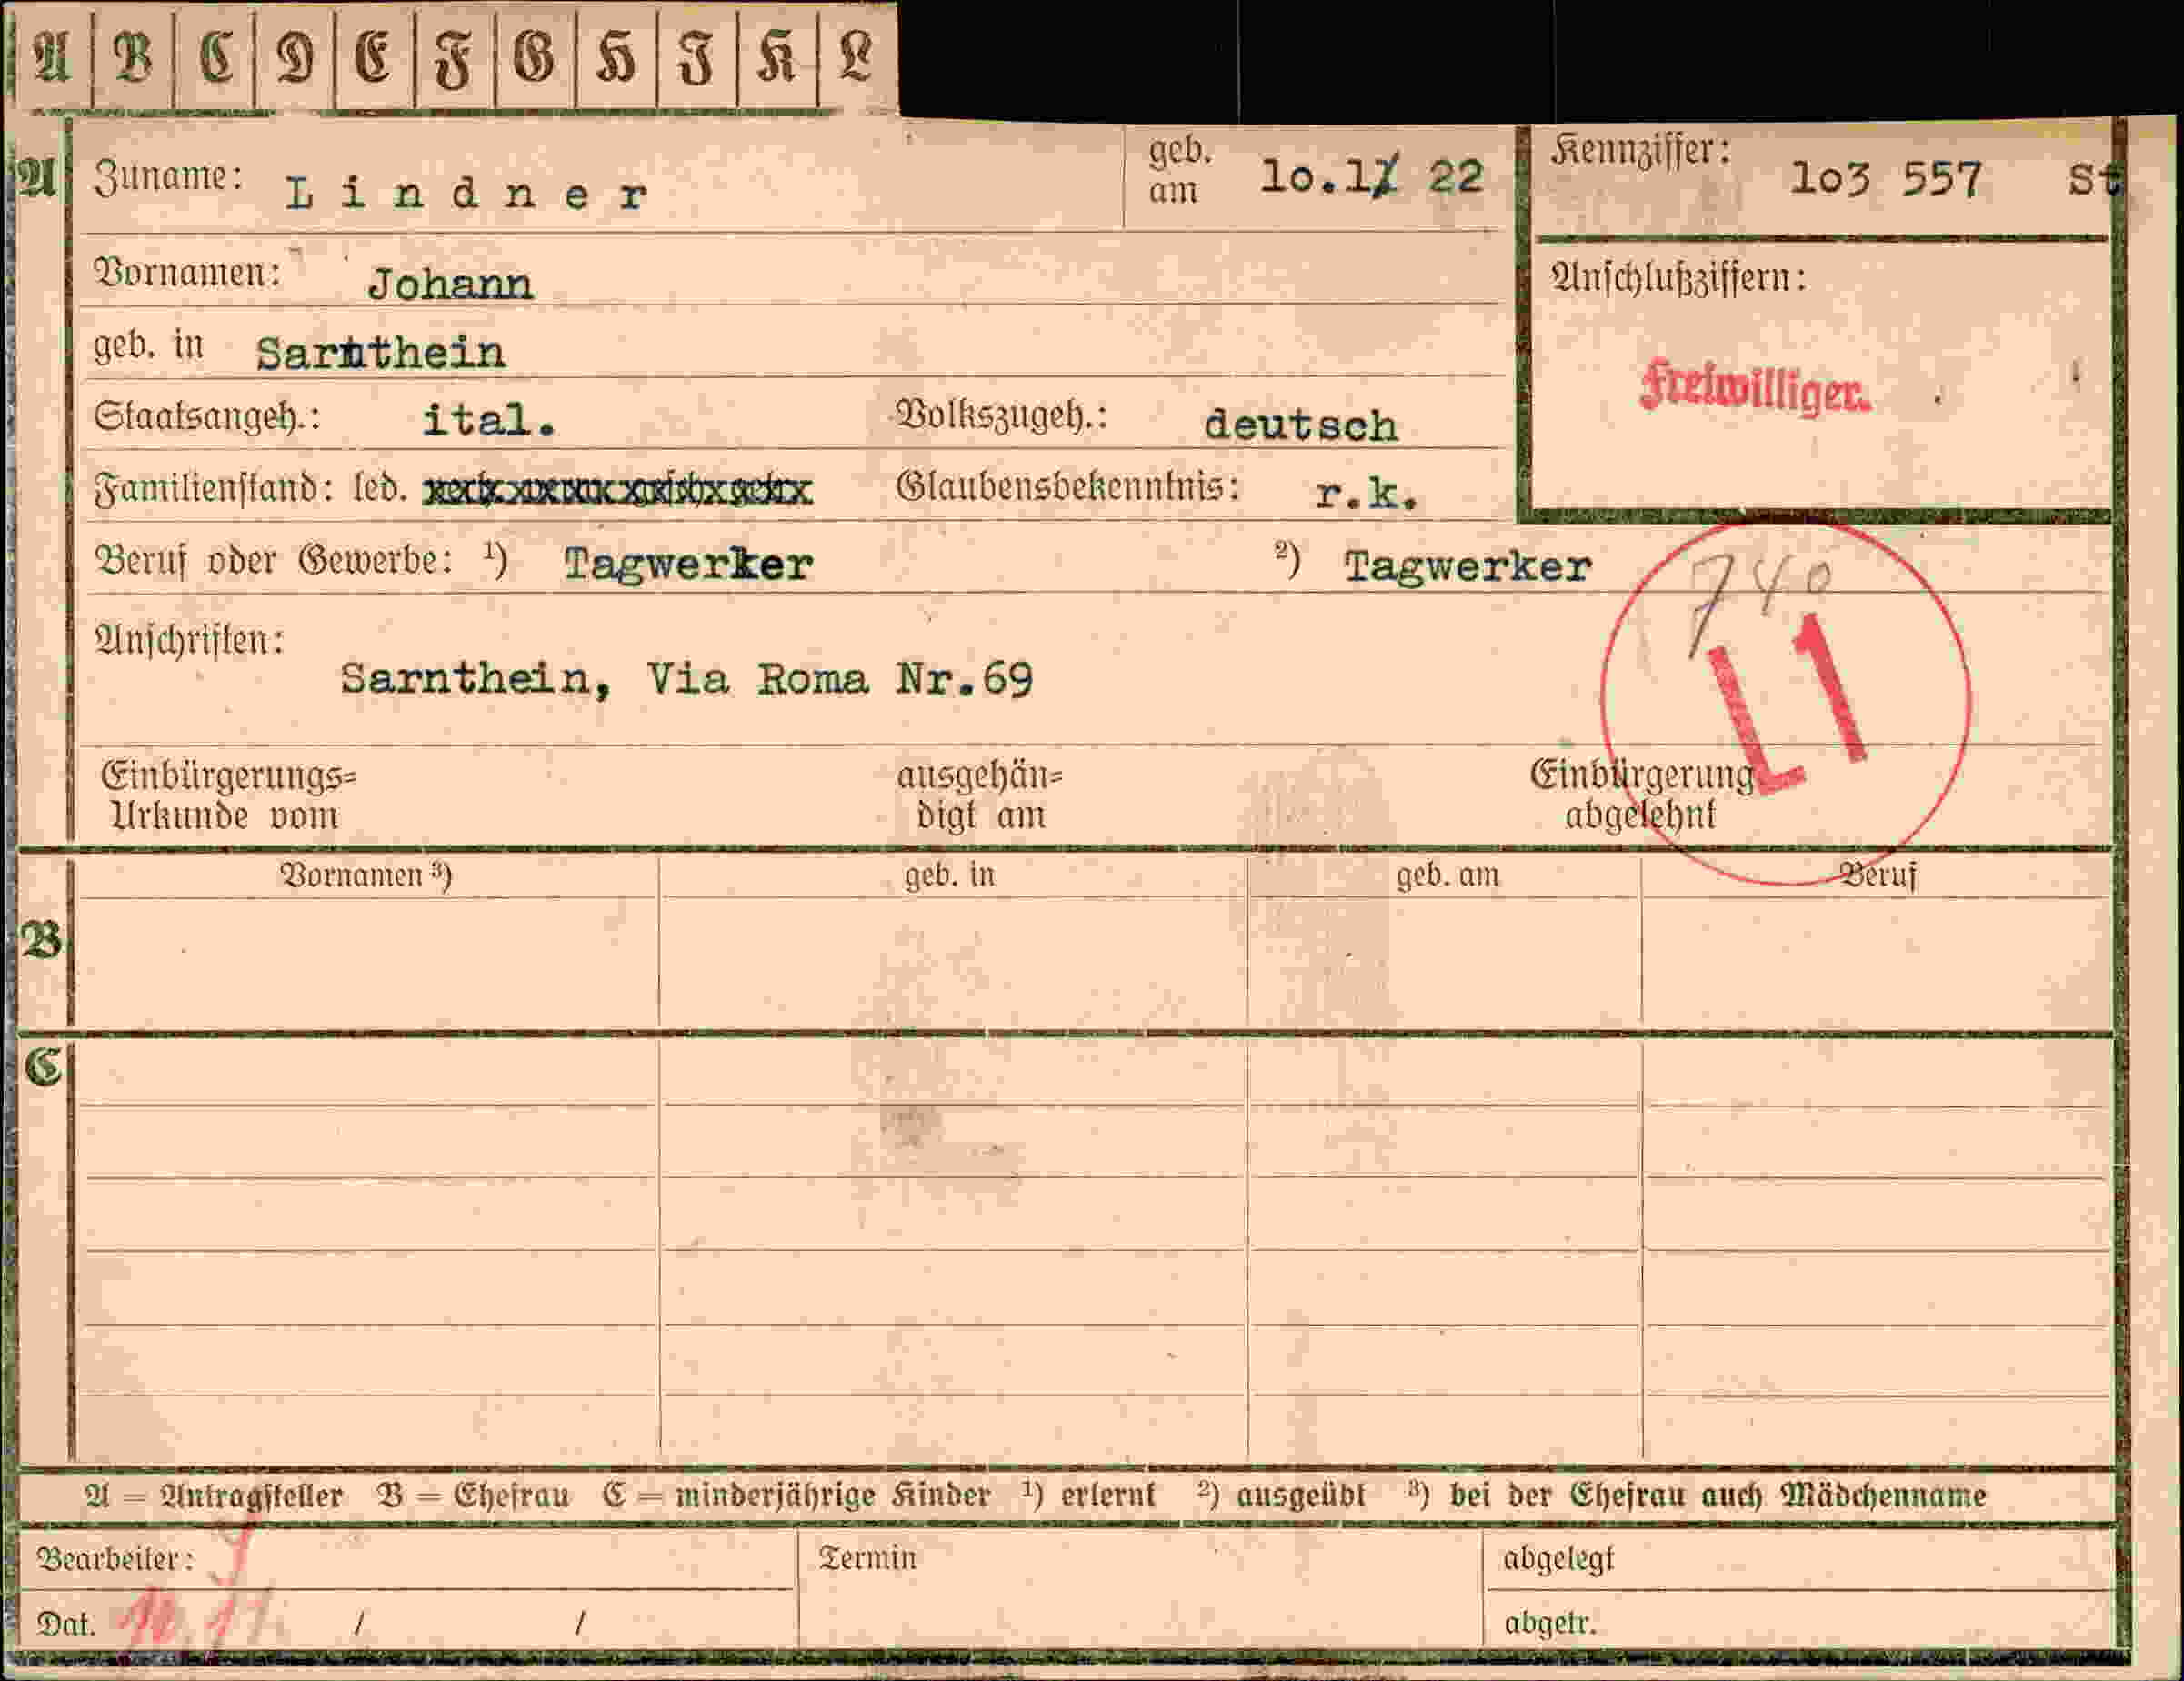 A B C D E F G H I K L
A Zuname: Lindner geb. am 10.1 22 Kennziffer: 103 557 St
Vornamen: Johann
Anschlußziffern:
geb. in Sarnthein
Freiwilliger.
Staatsangeh.: ital. Volkszugeh.: deutsch
Familienstand: led. Glaubensbekenntnis: r.k.
Beruf oder Gewerbe: ¹) Tagwerker ²) Tagwerker
740
L1
Anschriften:
Sarnthein, Via Roma Nr.69
Einbürgerungs= ausgehän= Einbürgerung
Urkunde vom digt am abgelehnt
Vornamen ³) geb. in geb. am Beruf
B
C
A = Antragsteller B = Ehefrau C = minderjährige Kinder ¹) erlernt ²) ausgeübt ³) bei der Ehefrau auch Mädchenname
Bearbeiter: Termin abgelegt
Dat. / / abgetr.